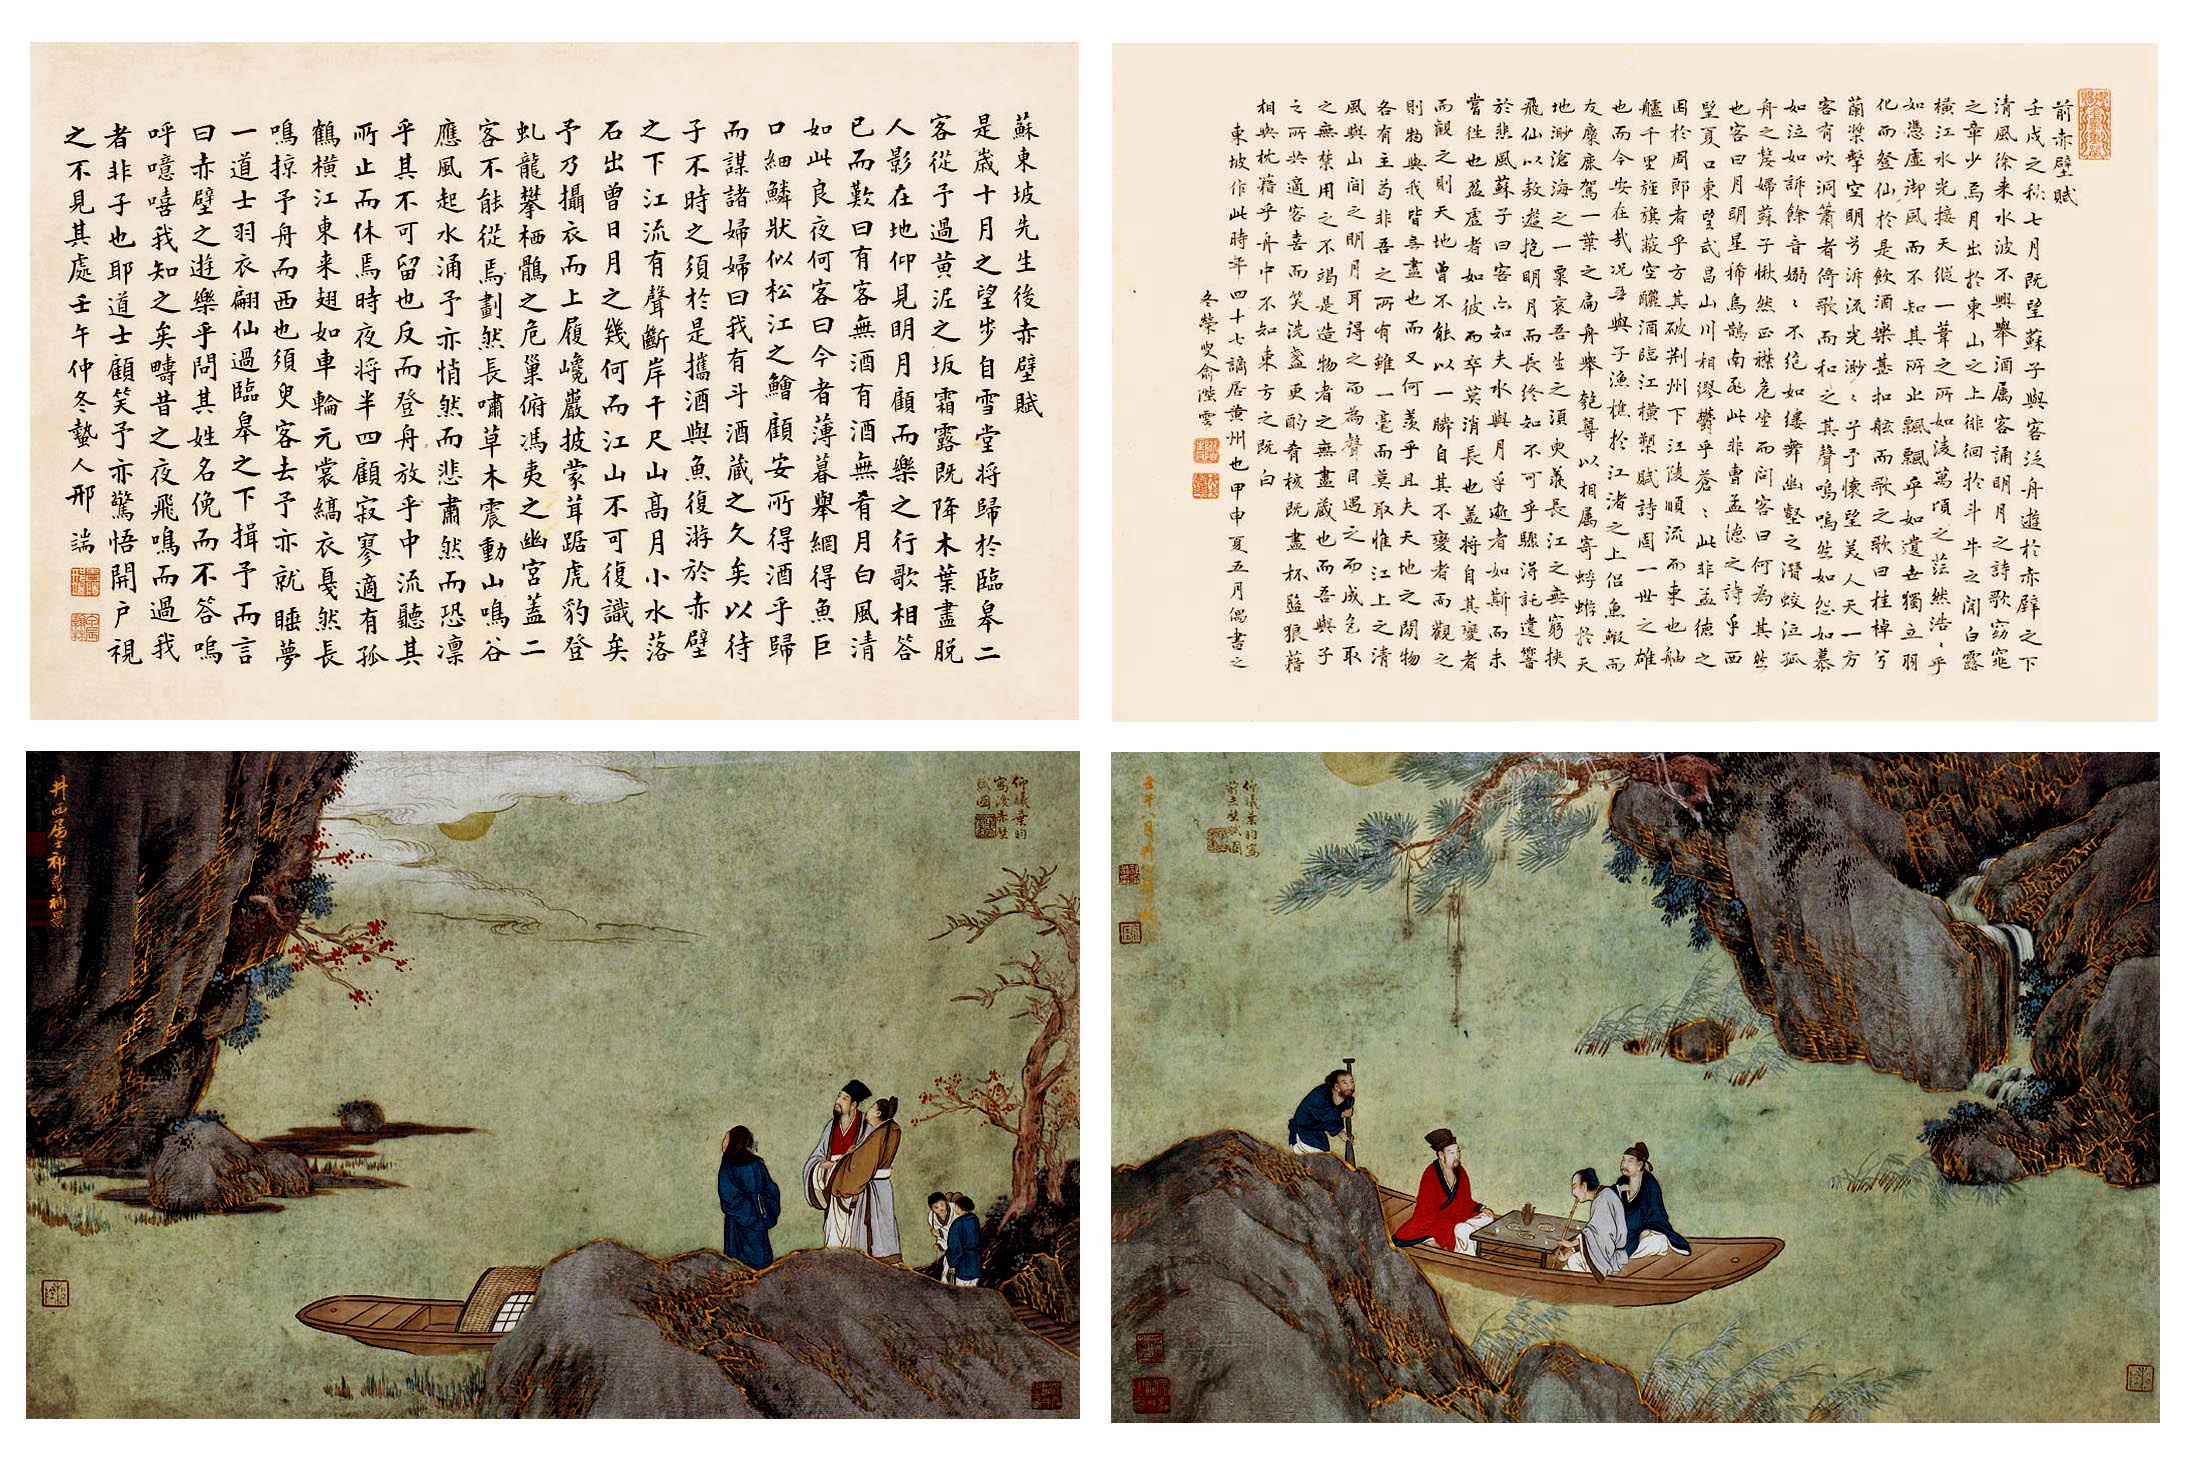 前赤壁賦
壬戌之秋七月既望蘇子與客泛舟遊於赤壁之下
清風徐来水波不興舉酒属客誦明月之詩歌窈窕
之章少焉月出於東山之上徘徊於斗牛之間白露
橫江水光接天縱一葦之所如淩萬頃之茫然浩〻乎
如憑虛御風而不知其所止飄飄乎如遺世獨立羽
化而登仙於是飲酒樂甚扣舷而歌之歌曰桂棹兮
蘭槳擊空明兮泝流光渺〻兮予懷望美人天一方
客有吹洞簫者倚歌而和之其聲嗚嗚然如怨如慕
如泣如訴餘音嫋〻不絕如縷舞幽壑之潛蛟泣孤
舟之嫠婦蘇子愀然正襟危坐而问客曰何為其然
也客曰月明星稀烏鵲南飛此非曹孟德之詩乎西
望夏口東望武昌山川相繆鬱乎蒼〻此非孟德之
困於周郎者乎方其破荆州下江陵順流而東也舳
艫千里旌旗蔽空釃酒臨江橫槊賦詩固一世之雄
也而今安在哉况吾與子漁樵於江渚之上侣魚蝦而
友麋鹿駕一葉之扁舟舉匏尊以相属寄蜉蝣於天
地渺滄海之一粟哀吾生之須臾羨長江之無窮挟
飛仙以敖遊抱明月而長終知不可乎驟淂託遺響
於悲風蘇子曰客亦知夫水與月乎逝者如斯而未
嘗往也盈虛者如彼而卒莫消長也盖将自其變者
而觀之則天地曾不能以一瞬自其不變者而觀之
則物與我皆無盡也而又何羨乎且夫天地之間物
各有主苟非吾之所有雖一毫而莫取惟江上之清
風與山间之明月耳得之而為聲目遇之而成色取
之無禁用之不竭是造物者之無盡蔵也而吾與子
之所共適客喜而笑洗盞更酌肴核既盡杯盤狼藉
相與枕藉乎舟中不知東方之既白
東坡作此時年四十七謫居黄州也甲申夏五月偶書之
冬榮叟俞陛雲
蘇東坡先生後赤壁賦
是歲十月之望步自雪堂将歸於臨皋二
客從予過黄泥之坂霜露既降木葉盡脱
人影在地仰見明月顧而樂之行歌相答
已而歎曰有客無酒有酒無肴月白風清
如此良夜何客曰今者薄暮舉網得魚巨
口細鱗狀似松江之鱸顧安所得酒乎歸
而謀諸婦婦曰我有斗酒蔵之久矣以待
子不時之須於是攜酒與魚復游於赤壁
之下江流有聲斷岸千尺山高月小水落
石出曾日月之幾何而江山不可復識矣
予乃攝衣而上履巉巖披蒙茸踞虎豹登
虬龍攀栖鶻之危巢俯馮夷之幽宮蓋二
客不能從焉劃然長嘯草木震動山鳴谷
應風起水涌予亦悄然而悲肅然而恐凛
乎其不可留也反而登舟放乎中流聽其
所止而休焉時夜将半四顧寂寥適有孤
鶴橫江東来翅如車輪元裳縞衣戛然長
鳴掠予舟而西也須臾客去予亦就睡夢
一道士羽衣翩仙過臨皋之下揖予而言
曰赤壁之遊樂乎問其姓名俛而不答嗚
呼噫嘻我知之矣疇昔之夜飛鳴而過我
者非子也耶道士顧笑予亦驚悟開户視
之不見其處壬午仲冬蟄人邢端
仰曦葉昀寫
前赤壁賦圖
壬午八月
仰曦葉昀
寫後赤壁
賦圖
井西居士祁崑補景